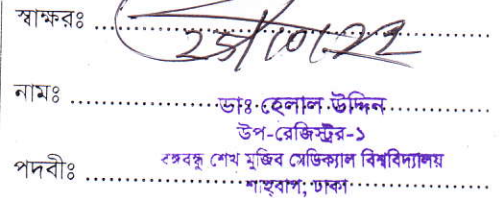 স্বাক্ষরঃ
25/01.22
নামঃ ডাঃ হেলাল উদ্দিন
উপ-রেজিস্ট্রার-১
পদবীঃ বঙ্গবন্ধু শেখ মুজিব মেডিক্যাল বিশ্ববিদ্যালয়
শাহবাগ, ঢাকা